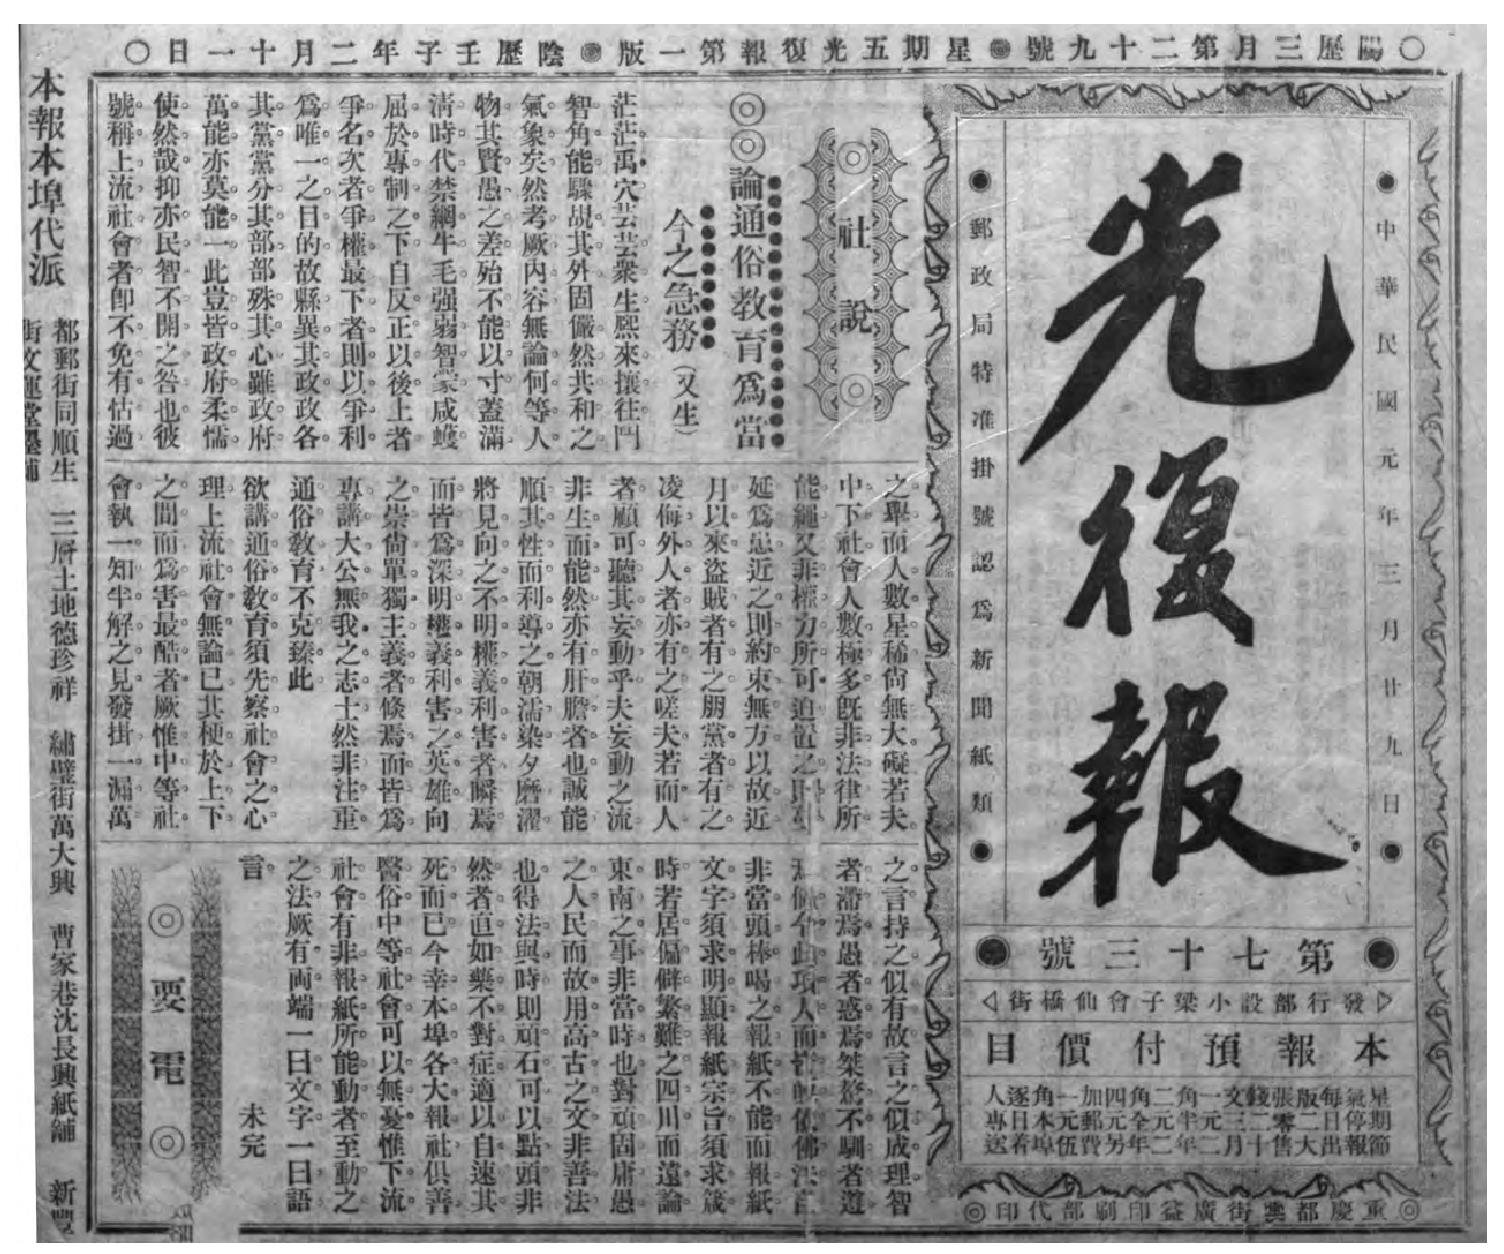 ○陽歷三月第二十九號◉星期五光復報第一版◉陰歷壬子年二月十一日○
●中華民國元年三月廿九日●
光復報
●郵政局特准掛號認爲新聞紙類●
●第七十三號●
▷發行部設小梁子會仙橋街◁
本報預付價目
星期
節
氣停報
每日出
版二大
張零售
錢二十
文三月
一元二
角半年
二元二
角全年
四元另
加郵費
一元伍
角本埠
逐日着
人專送
◎重慶都郵街廣益印刷部代印◎
◎社說◎
◎◎論通俗教育爲當
今之急務(又生)
茫茫禹穴。芸芸衆生。熙來攘往。鬥
智角能。驟覘其外。固儼然共和之
氣象矣。然考厥內容。無論何等人
物。其賢愚之差。殆不能以寸。蓋滿
淸時代。禁網牛毛。强弱智蒙。咸蠖
屈於專制之下。自反正以後。上者
爭名。次者爭權。最下者則以爭利
爲唯一之目的。故縣異其政。政各
其黨。黨分其部。部殊其心。雖政府
萬能。亦莫能一。此豈皆政府柔懦
使然哉。抑亦民智不開之咎也。彼
號稱上流社會者。卽不免有怙過
之舉。而人數星稀。尙無大礙。若夫
中下社會。人數極多。旣非法律所
能繩。又非權力所可迫。置之則
延爲患。近之則約束無方。以故近
月以來。盜賊者有之。朋黨者有之。
凌侮外人者亦有之。嗟夫。若而人
者。顧可聽其妄動乎。夫妄動之流。
非生而能然。亦有肝膽者也。誠能
順其性而利導之。朝濡染。夕磨濯。
將見向之不明權義利害者。瞬焉
而皆爲深明權義利害之英雄。向
之崇尙單獨主義者。倏焉而皆爲
專講大公無我之志士。然非注重
通俗敎育。不克臻此
欲講通俗敎育。須先察社會之心
理。上流社會無論已。其梗於上下
之間而爲害最酷者。厥惟中等社
會。執一知半解之見。發掛一漏萬
之言。持之似有故。言之似成理。智
者滯焉。愚者惑焉。桀驁不馴者遵
此項人而
非當頭棒喝之報紙不能。而報紙
文字須求明顯。報紙宗旨須求箴
時。若居偏僻繁難之四川。而遠論
東南之事。非當時也。對頑固庸愚
之人民。而故用高古之文。非善法
也。得法與時。則頑石可以點頭。非
然者。直如藥不對症。適以自速其
死而已。今幸本埠各大報社俱善
醫俗。中等社會可以無憂。惟下流
社會有非報紙所能動者。至動之
之法。厥有兩端。一曰文字。一曰語
言。　　未完
◎要電◎
本報本埠代派
都郵街同順生　三層土地德珍祥　繡璧街萬大興　曹家巷沈長興紙舖　新豐
街文運堂墨舖